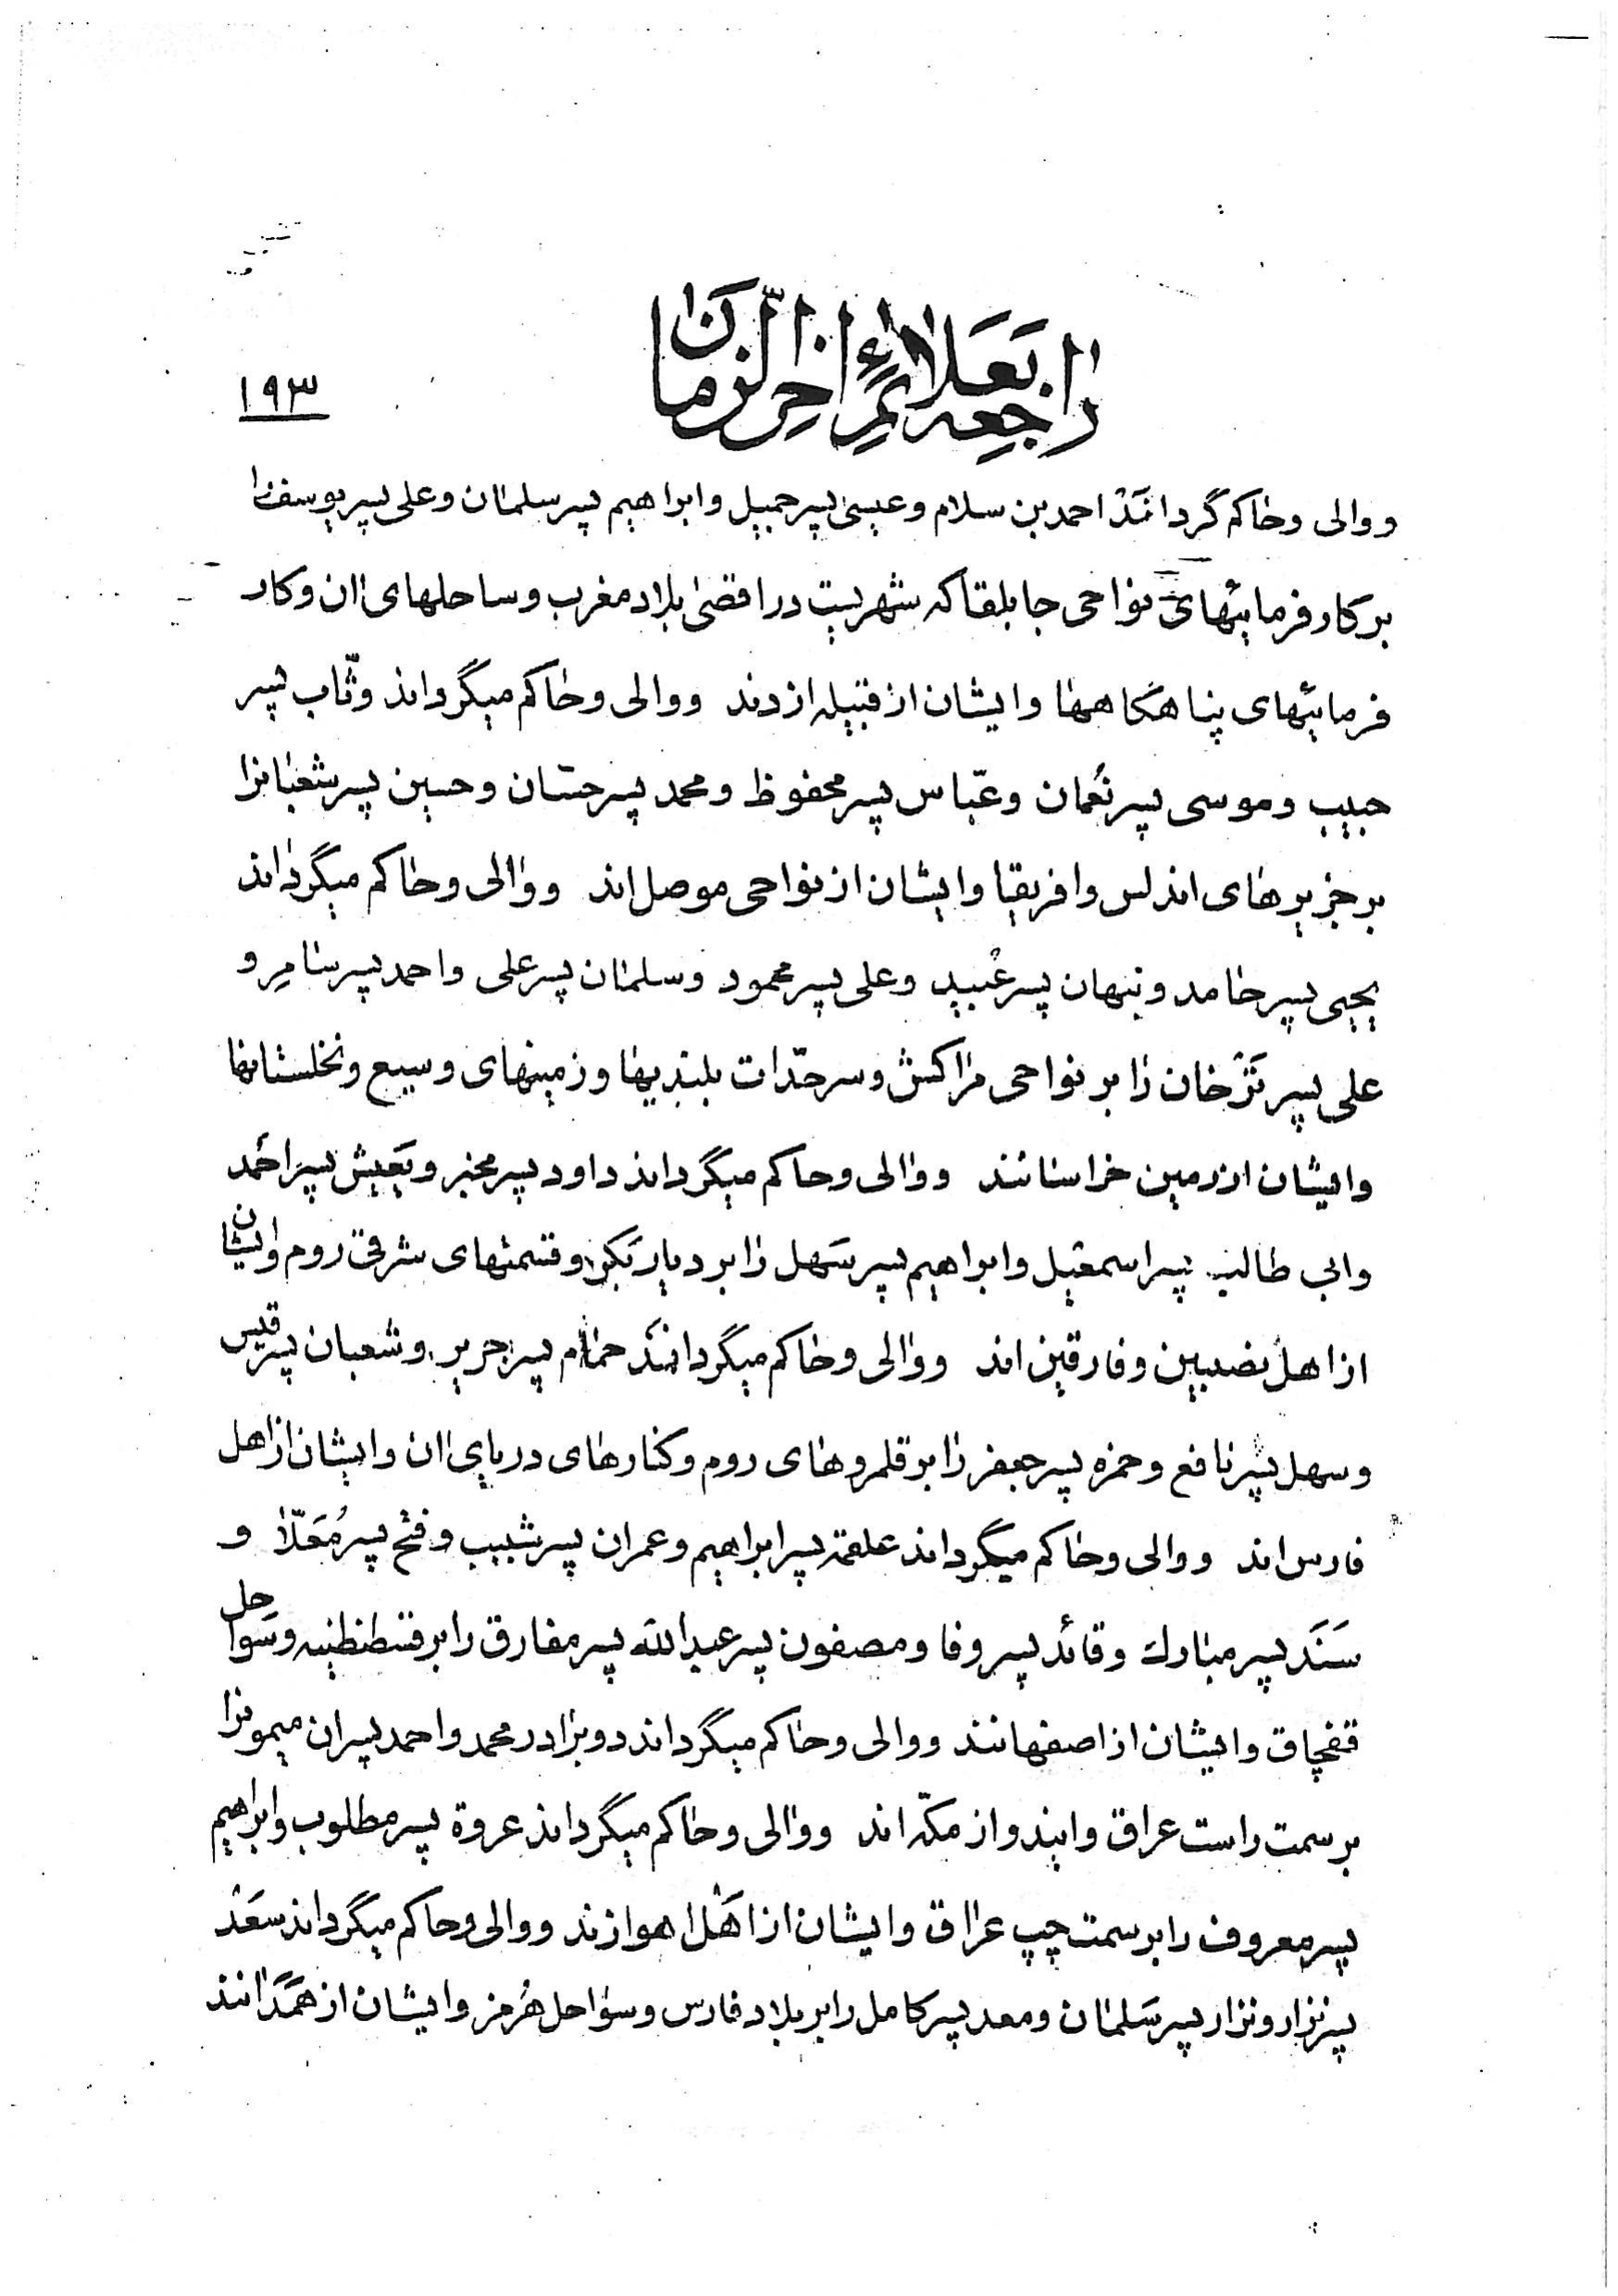 راجعه بعلائم اخر الزمان
۱۹۳
ووالی وحاکم گرداند احمد بن سلام وعیسی پسر جمیل وابراهیم پسر سلمان وعلی پسر یوسف را
بر کار فرمائیهای نواحی جابلقا که شهریست در اقصی بلاد مغرب وساحلهای ان وکار
فرمائیهای پناهگاهها وایشان از قبیله ازدند ووالی وحاکم میگرداند وثّاب پسر
حبیب وموسی پسر نُعمان وعبّاس پسر محفوظ ومحمد پسر حسّان وحسین پسر شعبانرا
بر جزیرهای اندلس وافریقیا وایشان از نواحی موصل اند ووالی وحاکم میگرداند
یحیی پسر حامد ونبهان پسر عُبید وعلی پسر محمود وسلمان پسر علی واحمد پسر سامِر و
علی پسر تَرخان را بر نواحی مراکش وسرحدّات بلندیها وزمینهای وسیع ونخلستانها
وایشان از زمین خراسانند ووالی وحاکم میگرداند داود پسر مخبر ویَعیش پسر احمد
وابی طالب پسر اسمعیل وابراهیم پسر سَهل را بر دیار بَکر وقسمتهای شرقی روم وایشان
از اهل نصیبین وفارقین اند ووالی وحاکم میگرداند حمام پسر جریر وشعبان پسر قیس
وسهل پسر نافع وحمزه پسر جعفر را بر قلمروهای روم وکنارهای دریای ان وایشان از اهل
فارس اند ووالی وحاکم میگرداند علقمة پسر ابراهیم وعمران پسر شبیب وفتح پسر مُعَلّا و
سَنَد پسر مبارک وقائد پسر وفا ومصفون پسر عبدالله پسر مفارق را بر قسطنطنیه وسَواحِل
قفچاق وایشان از اصفهانند ووالی وحاکم میگرداند دو برادر محمد واحمد پسران میمونرا
بر سمت راست عراق وایندو از مکّه اند ووالی وحاکم میگرداند عروة پسر مطلوب وابراهیم
پسر معروف را بر سمت چپ عراق وایشان از اَهل اهوازند ووالی وحاکم میگرداند سَعد
پسر نزار ونزار پسر سَلمان ومعد پسر کامل را بر بلاد فارس وسواحل هُرمز وایشان از هَمَدانند